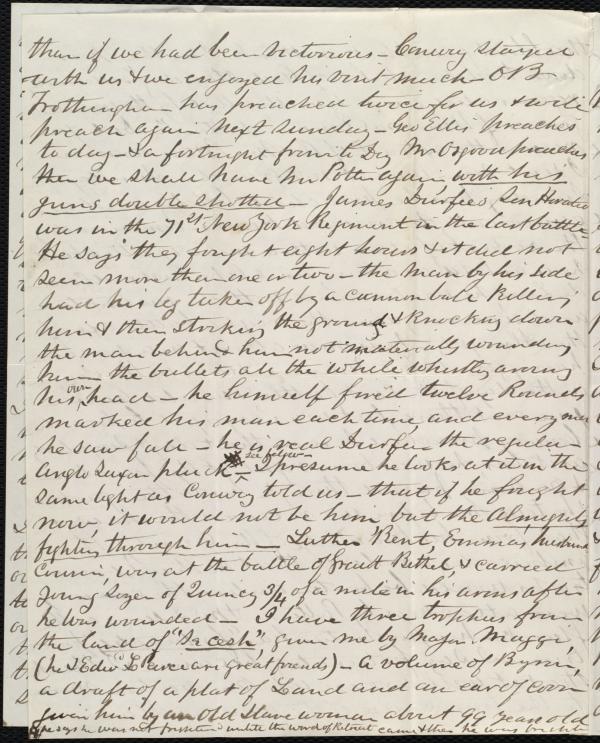 than if we had been victorious - Conway stayed
with us & we enjoyed his visit much - O B
Frothingham - has preached twice for us & will
preach again next Sunday - Geo Ellis preaches
to day - & a fortnight from to Day Mr Osgood preaches
then we shall have Mr Potter again with his
guns double shotted - James Durfee's son Horatio
was in the 71st New York Regiment in the last battle -
He says they fought eight hours & it did not
seem more than one or two - the man by his side
had his leg taken off by a cannon ball killing
him & then striking the ground & knocking down
the man behind him not materially wounding
him - the bullets all the while whistling around
his own head - he himself fired twelve Rounds
marked his man each time, and every man
he saw fall - he is real Durfee - the regular
Anglo Saxon pluck - see below - I presume he looks at it in the
same light as Conway told us - that if he fought
now, it would not be him, but the Almighty
fighting through him - Luther Bent, Emmas husband
Cousin, was at the battle of Great Bethel, & carried
young of Quincy 3/4 of a mile in his arms after
he was wounded - I have three trophies from
the land of "Secesh", given me by Major Maggi,
(he & Edwd Pearce are great friends) - a volume of Byron,
a draft of a plat of Land and an ear of corn
given him by an old Slave woman about 99 years old
he says he was not frightened untill the word of Retreat came & then he was